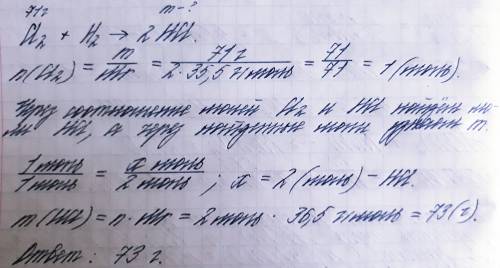 71г m-?
Cl₂ + H₂ → 2 HCl.
n(Cl₂) = m/Mr = 71 г/2·35,5 г/моль = 71/71 = 1 (моль).
Через соотношение молей Cl₂ и HCl найдём мо-
ли HCl, а через найденные моли узнаем m.
1 моль/1 моль = x моль/2 моль ; x = 2 (моль) - HCl.
m(HCl) = n · Mr = 2 моль · 36,5 г/моль = 73 (г).
Ответ: 73 г.